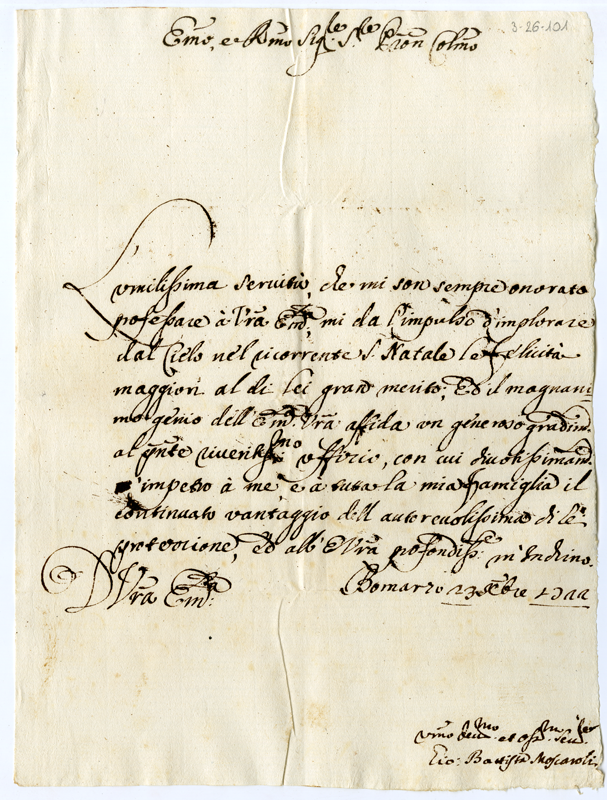 3-26-101
Emo, e Rmo Sig.re S.re Pron Colmo
L'umilissima servitù, che mi son sempre onorato
professare à Vra Em.za, mi da l'impulso d'implorare
dal Cielo nel ricorrente S. Natale le felicità
maggiori al di lei gran merito; Ed il magnani-
mo genio dell'Em.za Vra affida un generoso gradim.
al pnte riverentis.mo uffizio, con cui divotissimam.
impetro à me e à tutta la mia famiglia il
continuato vantaggio dell autorevolissima di lei
protezzione, ed all'E Vra profondiss. m'Inchino.
D Vra Em.za Bomarzo 23 Xbre
Umo Dev.mo et Serv.
Gio: Battista Moscaroli